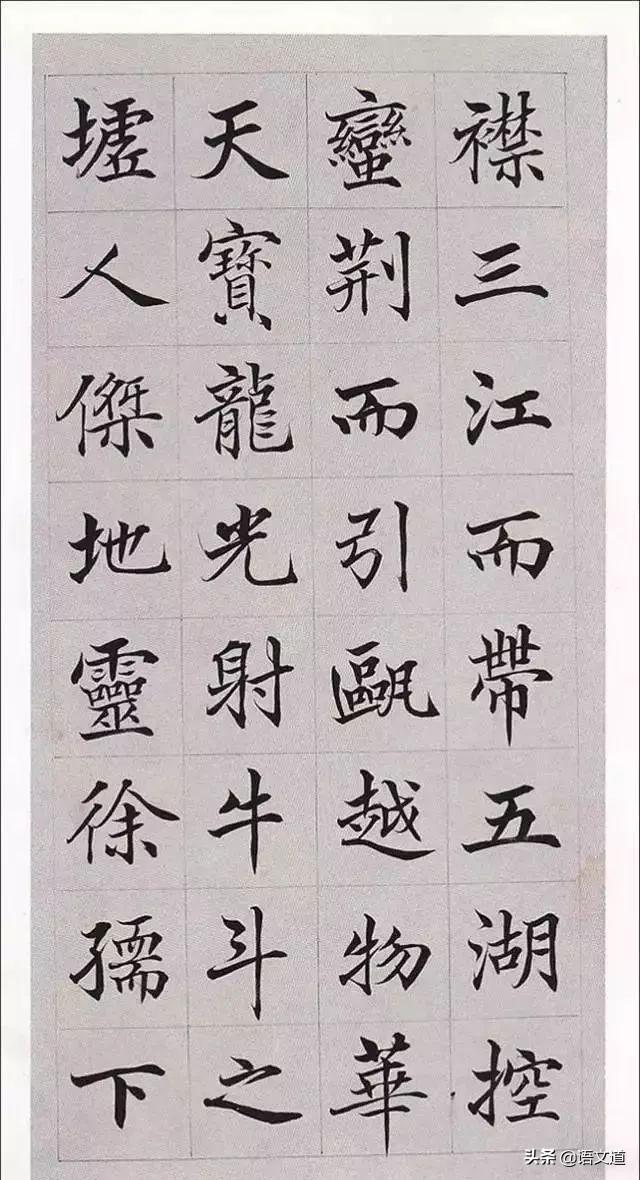 襟三江而帶五湖控
蠻荆而引甌越物華
天寶龍光射牛斗之
墟人傑地靈徐孺下
头条 @语文道